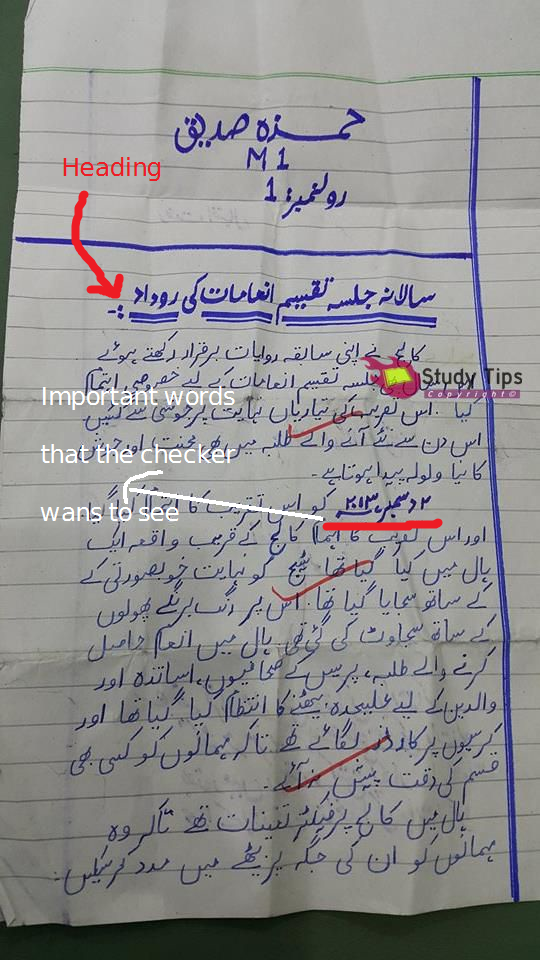 حمزہ صدیق
M1
رولنمبر: 1
Heading
سالانہ جلسہ تقسیم انعامات کی روداد :-
کالج نے اپنی سابقہ روایات برقرار رکھتے ہوئے
جلسہ تقسیم انعامات کے لیے خصوصی اہتمام
Study Tips
Copyright©
کیا۔ اس تقریب کی تیاریاں نہایت پرجوشی سے کئیں
Important words
اس دن سے نئے آنے والے طلبہ میں بھی محنت اور جوش
that the checker
کا نیا ولولہ پیدا ہوتا ہے۔
۲ دسمبر ۲۰۱۳ کو اس تقریب کا گیا
wans to see
اور اس تقریب کا اہتمام کالج کے قریب واقعہ ایک
ہال میں کیا گیا تھا سٹیج کو نہایت خوبصورتی کے
کے ساتھ سجایا گیا تھا۔ اس پر رنگ برنگے پھولوں
کے ساتھ سجاوٹ کی گئی تھی ہال میں انعام حاصل
کرنے والے طلبہ، پریس کے صحافیوں، اساتذہ اور
والدین کے لیے علیحدہ بیٹھنے کا انتظام کیا گیا تھا اور
کرسیوں پر کارڈز لگائے تھے تاکہ مہمانوں کو کسی بھی
قسم کی دقت پیش نہ آئے۔
ہال میں کالج پرفیکٹر تعینات تھے تاکہ وہ
مہمانوں کو ان کی جگہ پر بیٹھے میں مدد کرسکیں۔